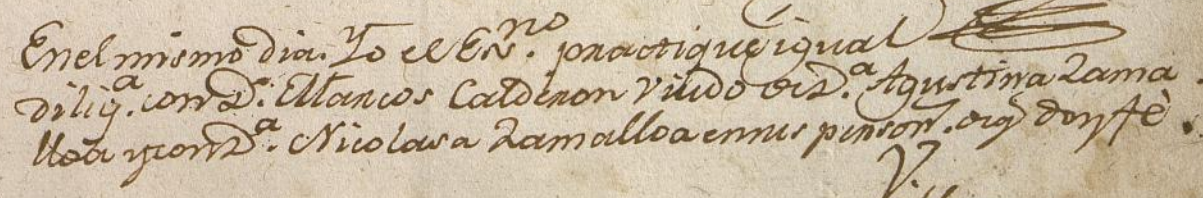 En el mismo dia. Yo el Esn.no practique igual
dilig.a con D.n Marcos Calderon Viudo de D.a Agustina Zama
lloa y con D.a Nicolasa Zamalloa en sus person.s de q doy fè.